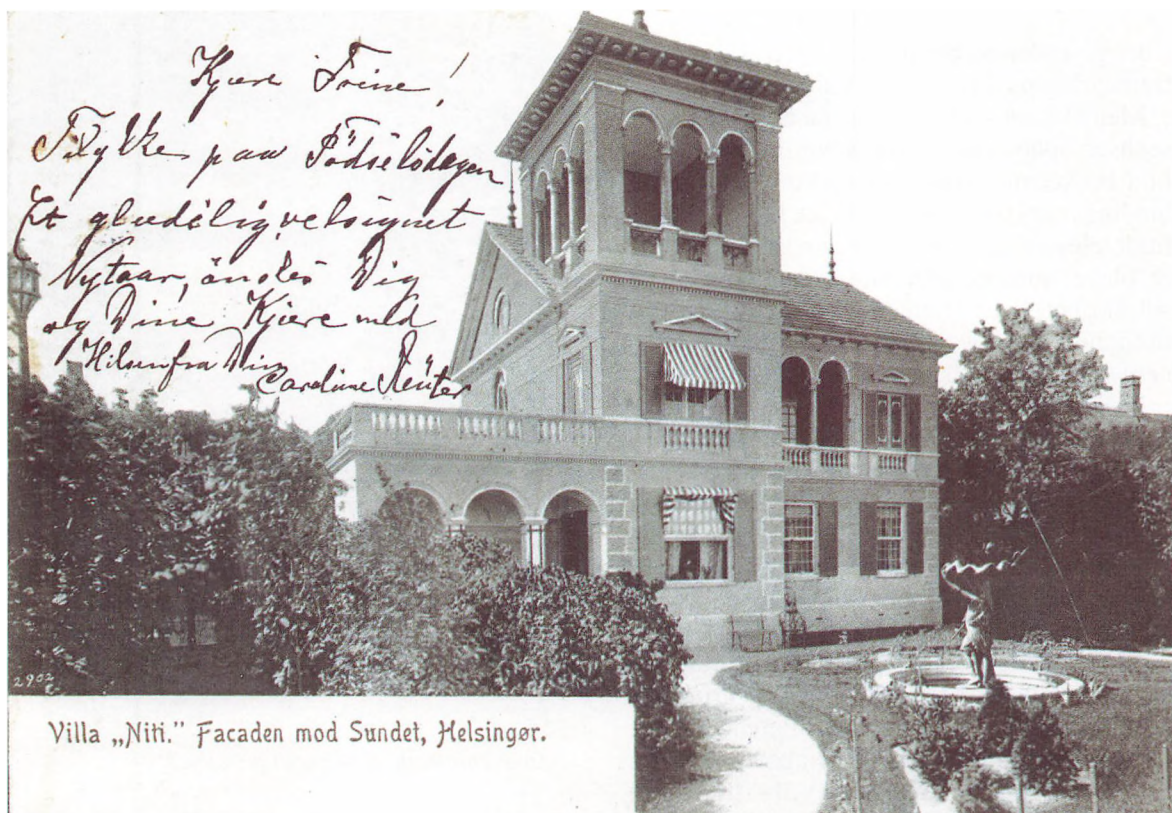 Kjære Trine!
Tillykke paa Födselsdagen
Et glædelig, velsignet
Nytaar, önskes Dig
og Dine Kjære med
Hilsen fra Din
Caroline Reuter
2902
Villa „Niti.” Facaden mod Sundet, Helsingør.